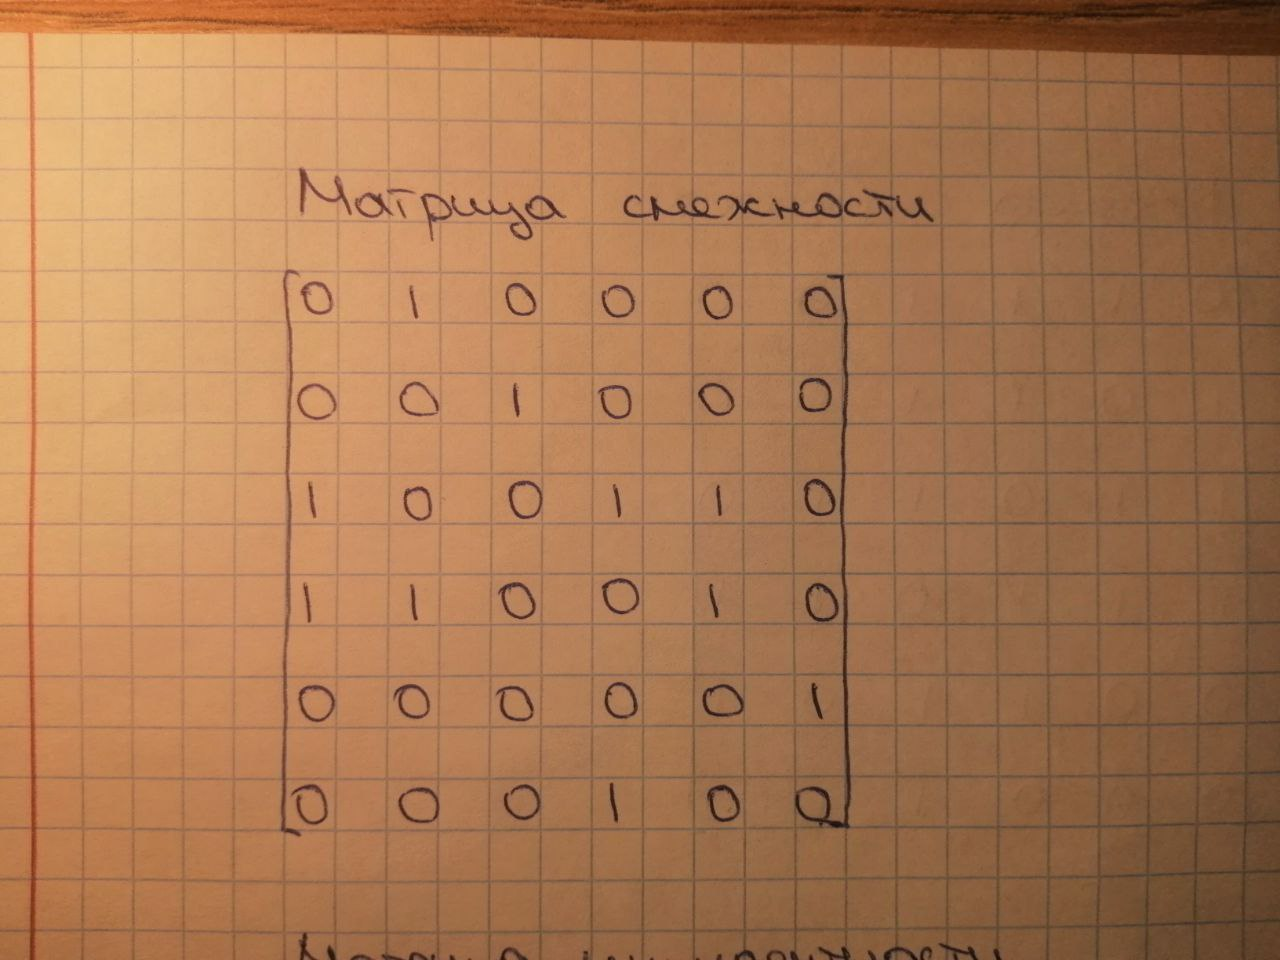 Матрица смежности
0 1 0 0 0 0
0 0 1 0 0 0
1 0 0 1 1 0
1 1 0 0 1 0
0 0 0 0 0 1
0 0 0 1 0 0